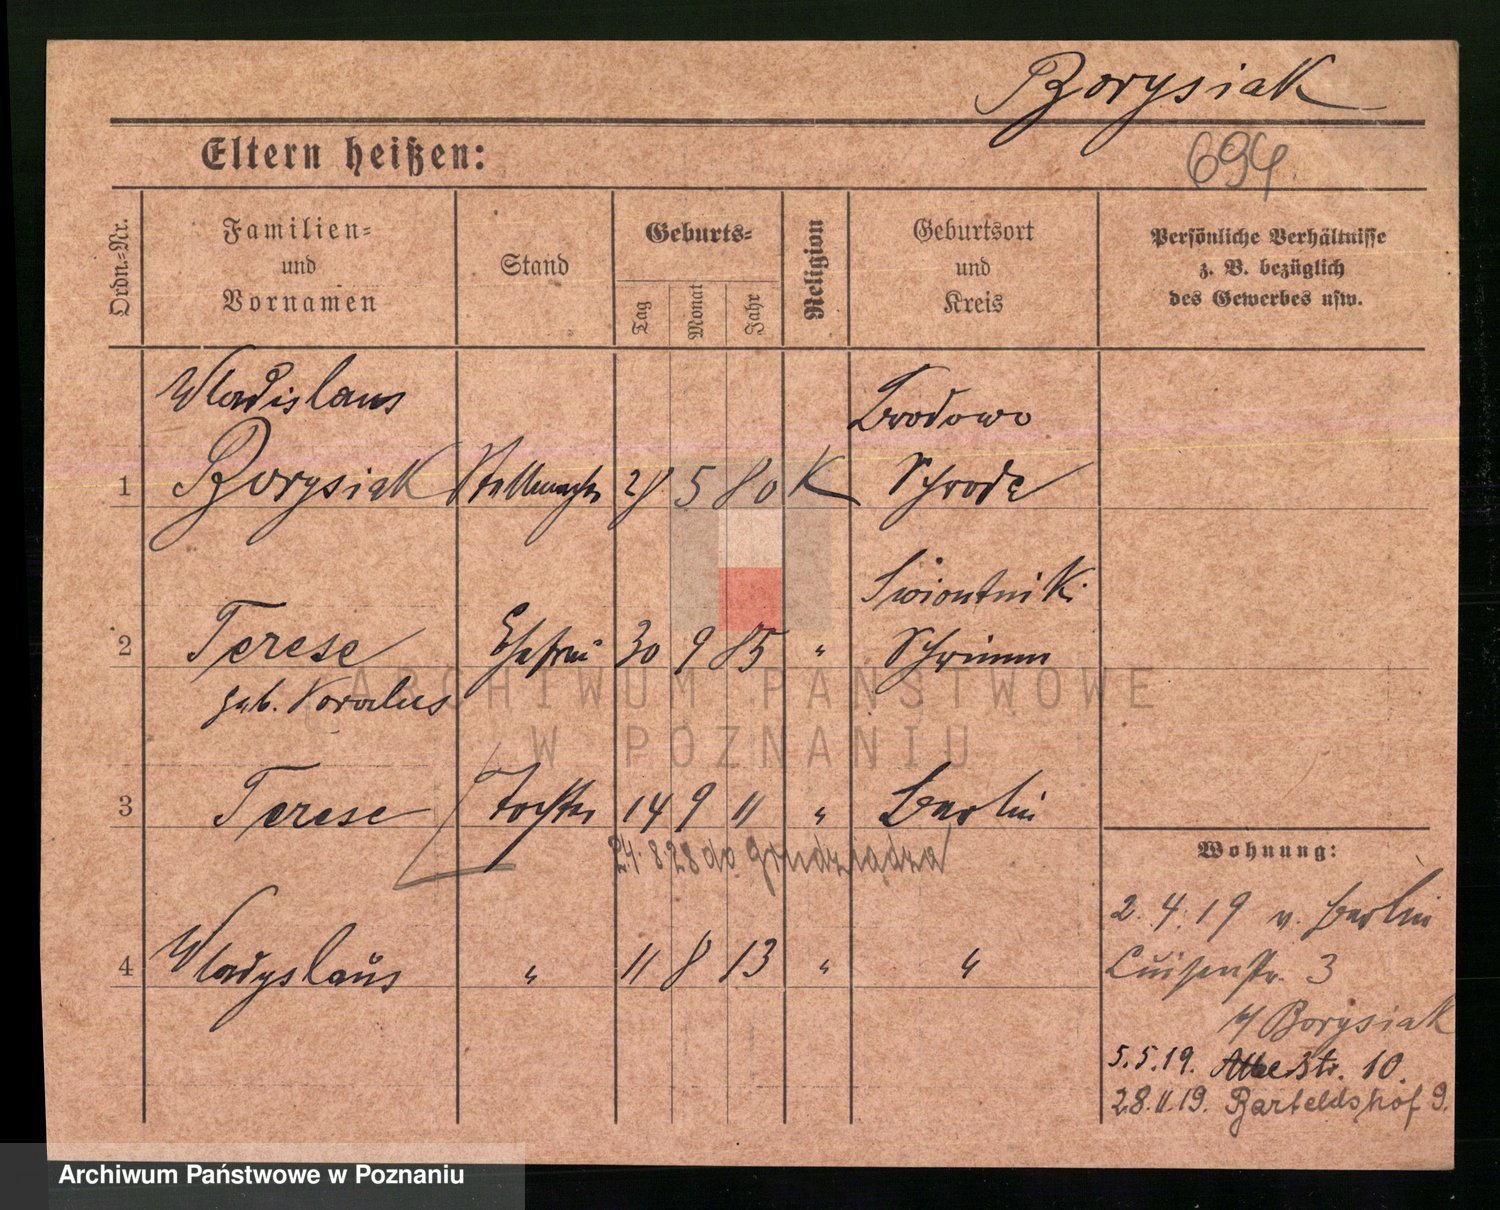 Borysiak
694
Eltern heißen:
Ordn.-Nr.
Familien-
und
Vornamen
Stand
Geburts-
Tag
Monat
Jahr
Religion
Geburtsort
und
Kreis
Persönliche Verhältnisse
z. B. bezüglich
des Gewerbes usw.
Wladislaus Brodowo
1 Borysiak Stellmacher 28 5 80 K Schroda
Swiontniki
2 Terese Ehefrau 30 9 85 " Schrimm
geb.
3 Terese Tochter 14 9 11 " Berlin
24.8.28 do Grudziądza
Wohnung:
2.4.19 v. Berlin
4 Wladyslaus " 11 8 13 " "
Luisenstr. 3
b/ Borysiak
5.5.19. 10.
28.11.19. Barteldshof 9.
ARCHIWUM PAŃSTWOWE
W POZNANIU
Archiwum Państwowe w Poznaniu